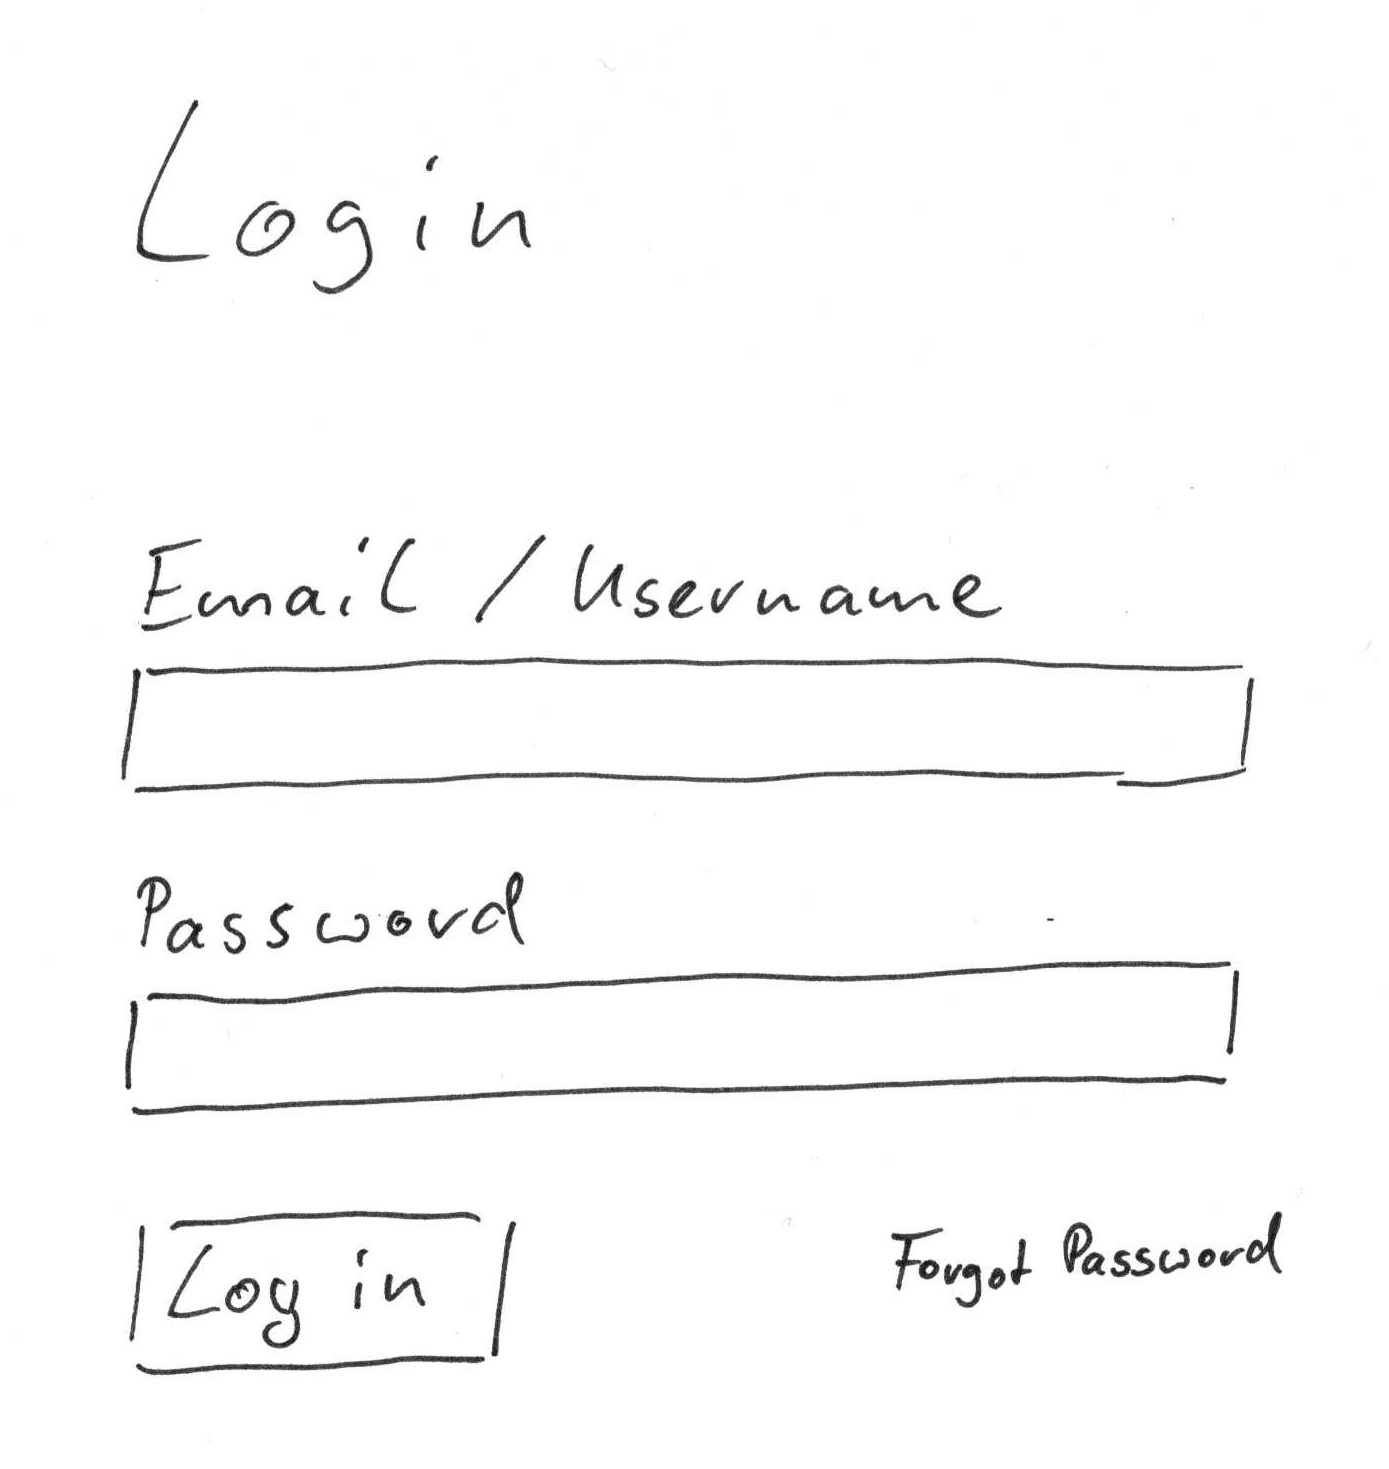 Login
Email / Username
Password
Log in
Forgot Password